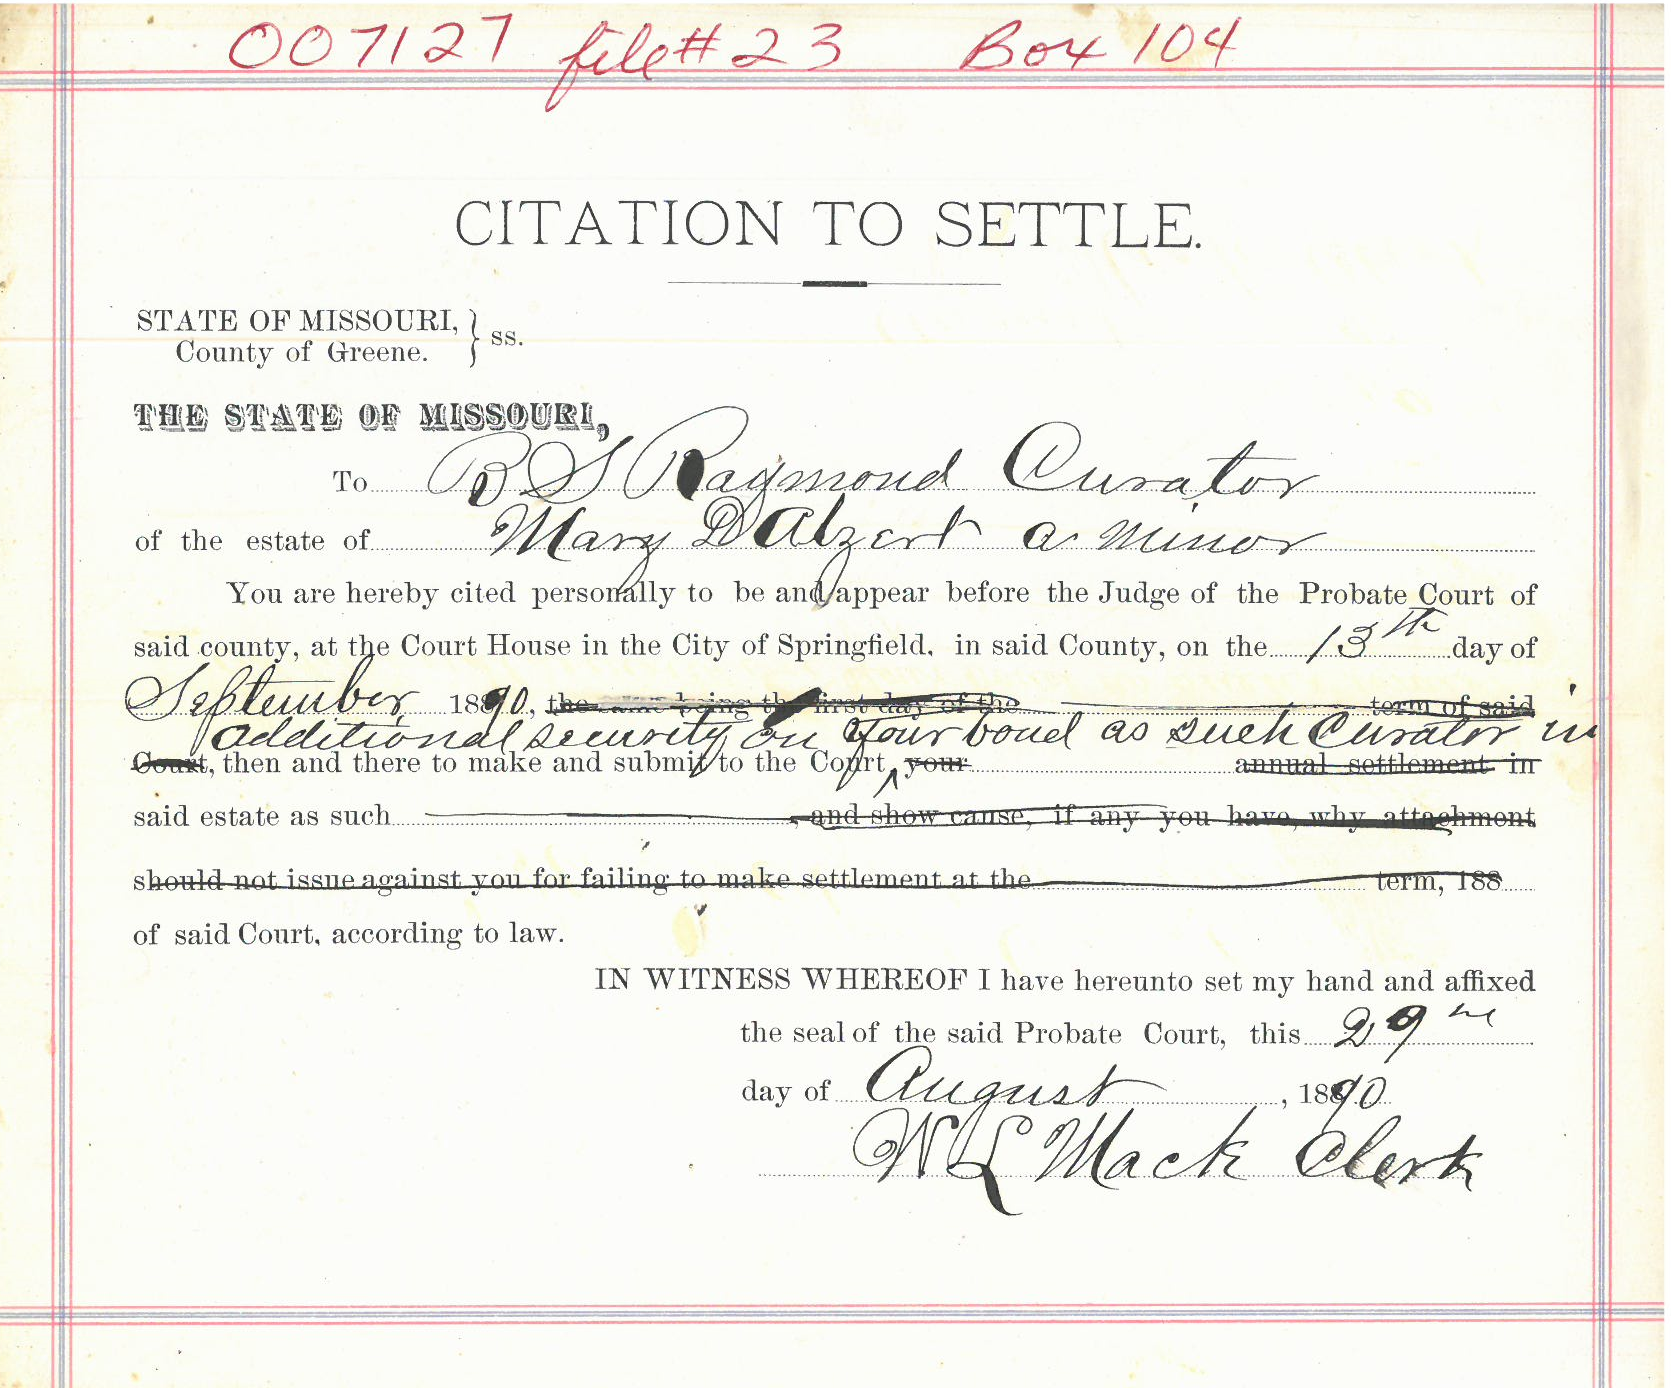 007127 file# 23 Box 104
CITATION TO SETTLE.
STATE OF MISSOURI,
County of Greene. } ss.
THE STATE OF MISSOURI,
To B S Raymond Curator
of the estate of Mary D Alzert a minor
You are hereby cited personally to be and appear before the Judge of the Probate Court of
said county, at the Court House in the City of Springfield, in said County, on the 13th day of
September 1890, the same being the first day of the term of said
additional security on your bond as such Curator in
Court, then and there to make and submit to the Court, your annual settlement in
said estate as such , and show cause, if any you have, why attachment
should not issue against you for failing to make settlement at the term, 188
of said Court, according to law.
IN WITNESS WHEREOF I have hereunto set my hand and affixed
the seal of the said Probate Court, this 29
day of August , 1890
W L Mack Clerk